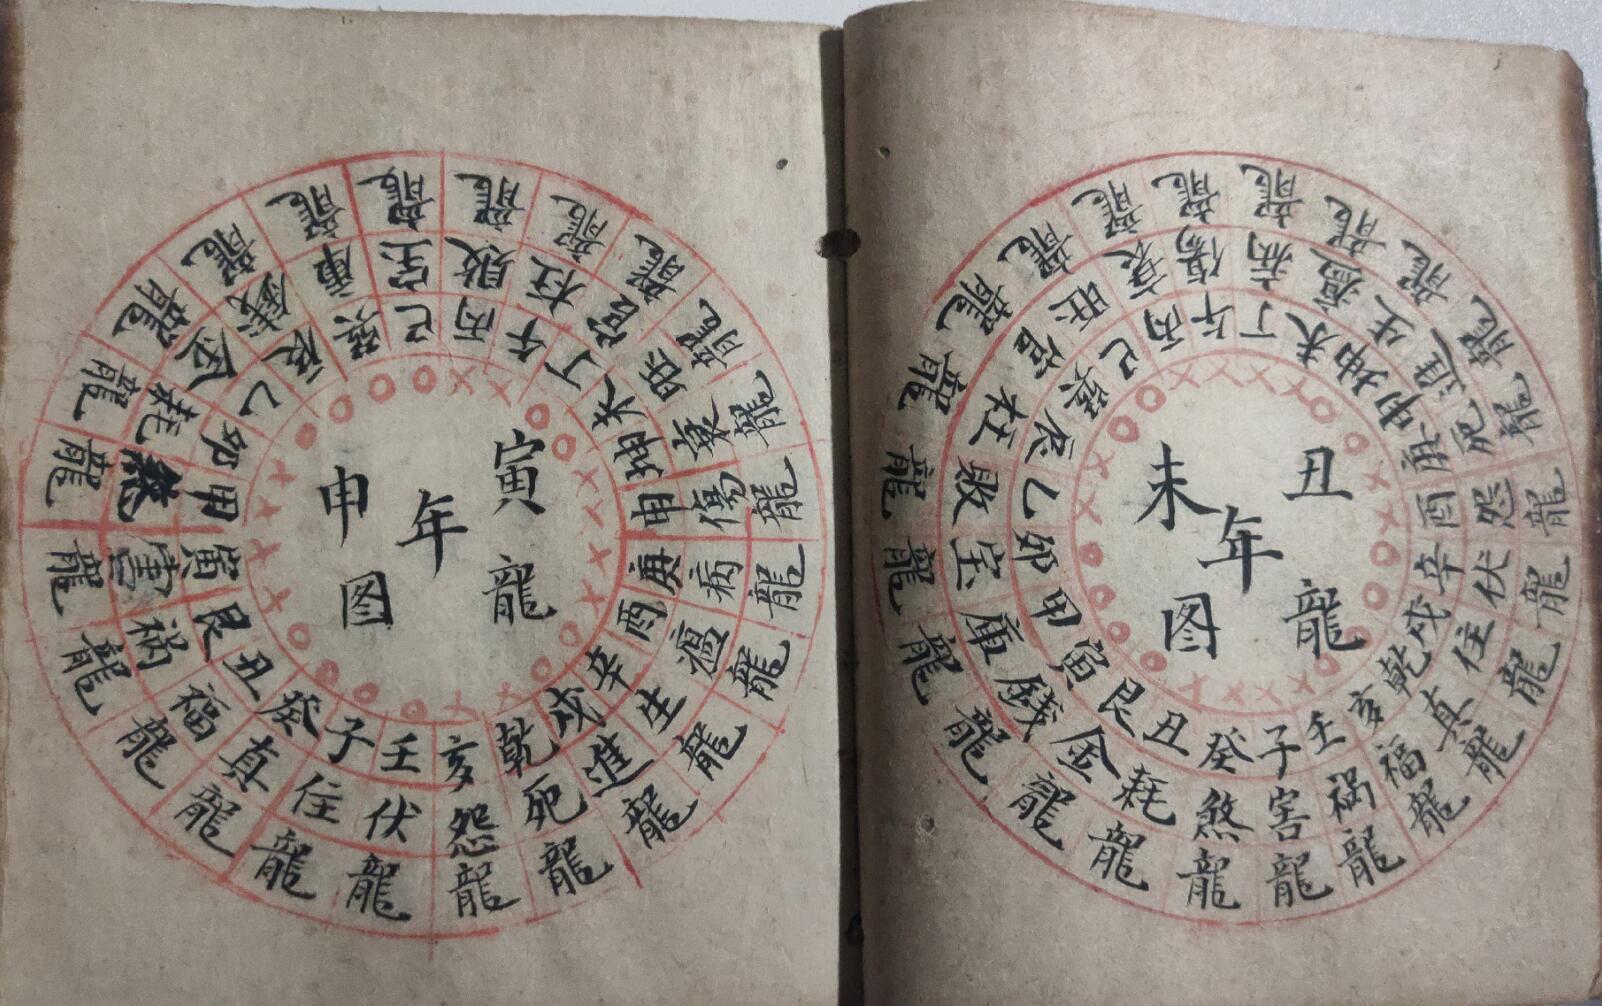 寅龍
年
申图
子癸丑艮寅甲卯乙辰巽巳丙午丁未坤申庚酉辛戌乾亥壬
住真福祸害煞耗金銭庫宝敗杜官旺衰傷病瘟生進死怨伏
龍龍龍龍龍龍龍龍龍龍龍龍龍龍龍龍龍龍龍龍龍龍龍龍
丑龍
年
未图
子癸丑艮寅甲卯乙辰巽巳丙午丁未坤申庚酉辛戌乾亥壬
害煞耗金銭庫宝敗杜官旺衰傷病瘟生進死怨伏住真福祸
龍龍龍龍龍龍龍龍龍龍龍龍龍龍龍龍龍龍龍龍龍龍龍龍